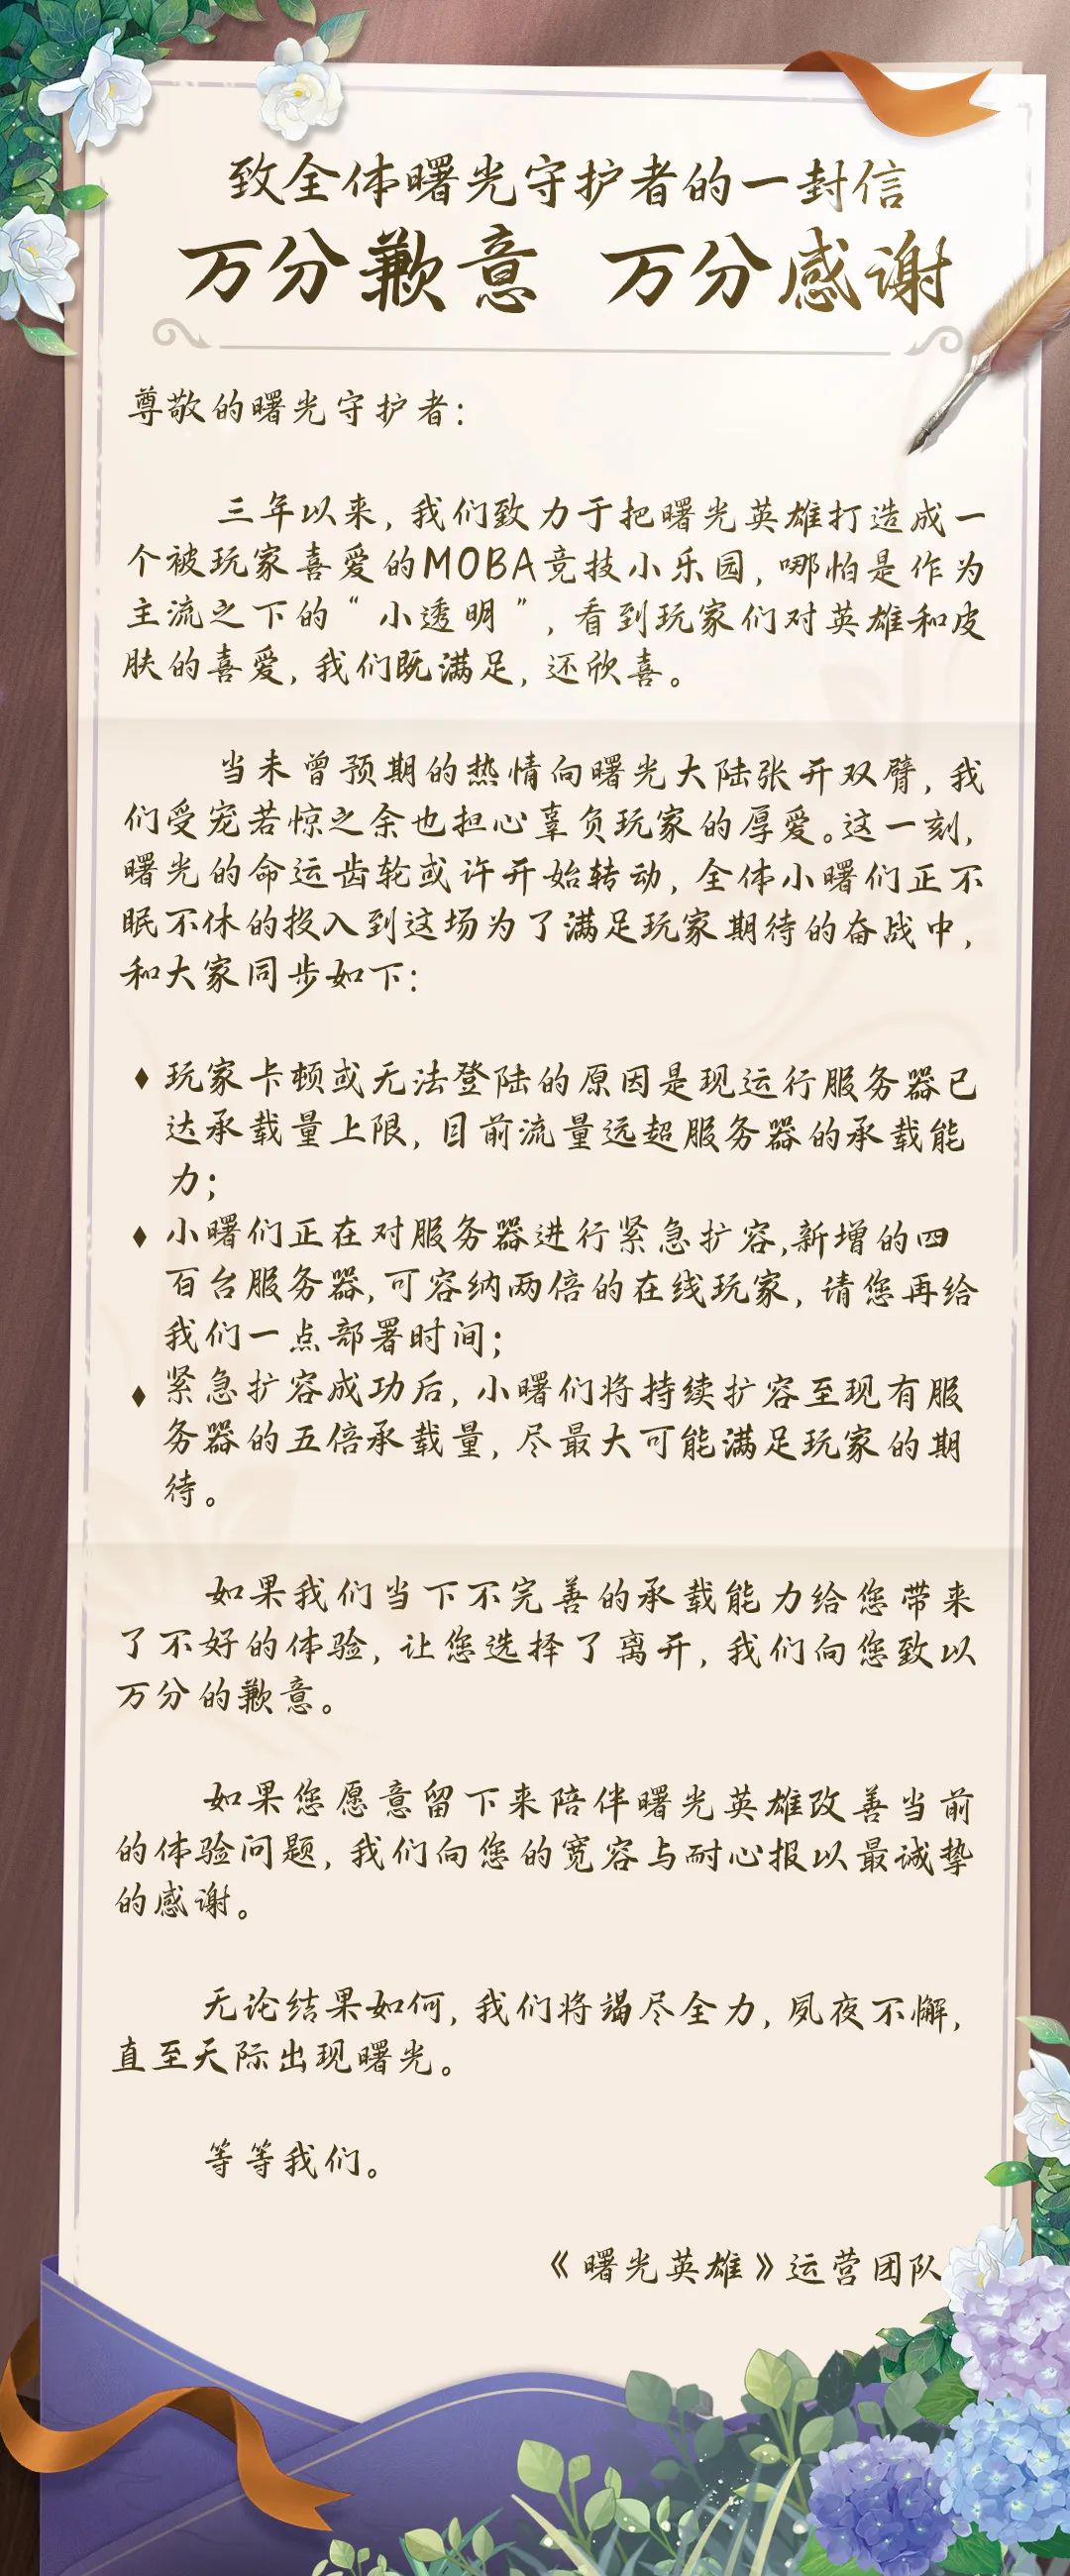 致全体曙光守护者的一封信
万分歉意 万分感谢
尊敬的曙光守护者：
三年以来，我们致力于把曙光英雄打造成一
个被玩家喜爱的MOBA竞技小乐园，哪怕是作为
主流之下的“小透明”，看到玩家们对英雄和皮
肤的喜爱，我们既满足，还欣喜。
当未曾预期的热情向曙光大陆张开双臂，我
们受宠若惊之余也担心辜负玩家的厚爱。这一刻，
曙光的命运齿轮或许开始转动，全体小曙们正不
眠不休的投入到这场为了满足玩家期待的奋战中，
和大家同步如下：
♦ 玩家卡顿或无法登陆的原因是现运行服务器已
达承载量上限，目前流量远超服务器的承载能
力；
♦ 小曙们正在对服务器进行紧急扩容,新增的四
百台服务器,可容纳两倍的在线玩家，请您再给
我们一点部署时间；
♦ 紧急扩容成功后，小曙们将持续扩容至现有服
务器的五倍承载量，尽最大可能满足玩家的期
待。
如果我们当下不完善的承载能力给您带来
了不好的体验，让您选择了离开，我们向您致以
万分的歉意。
如果您愿意留下来陪伴曙光英雄改善当前
的体验问题，我们向您的宽容与耐心报以最诚挚
的感谢。
无论结果如何，我们将竭尽全力，夙夜不懈，
直至天际出现曙光。
等等我们。
《曙光英雄》运营团队